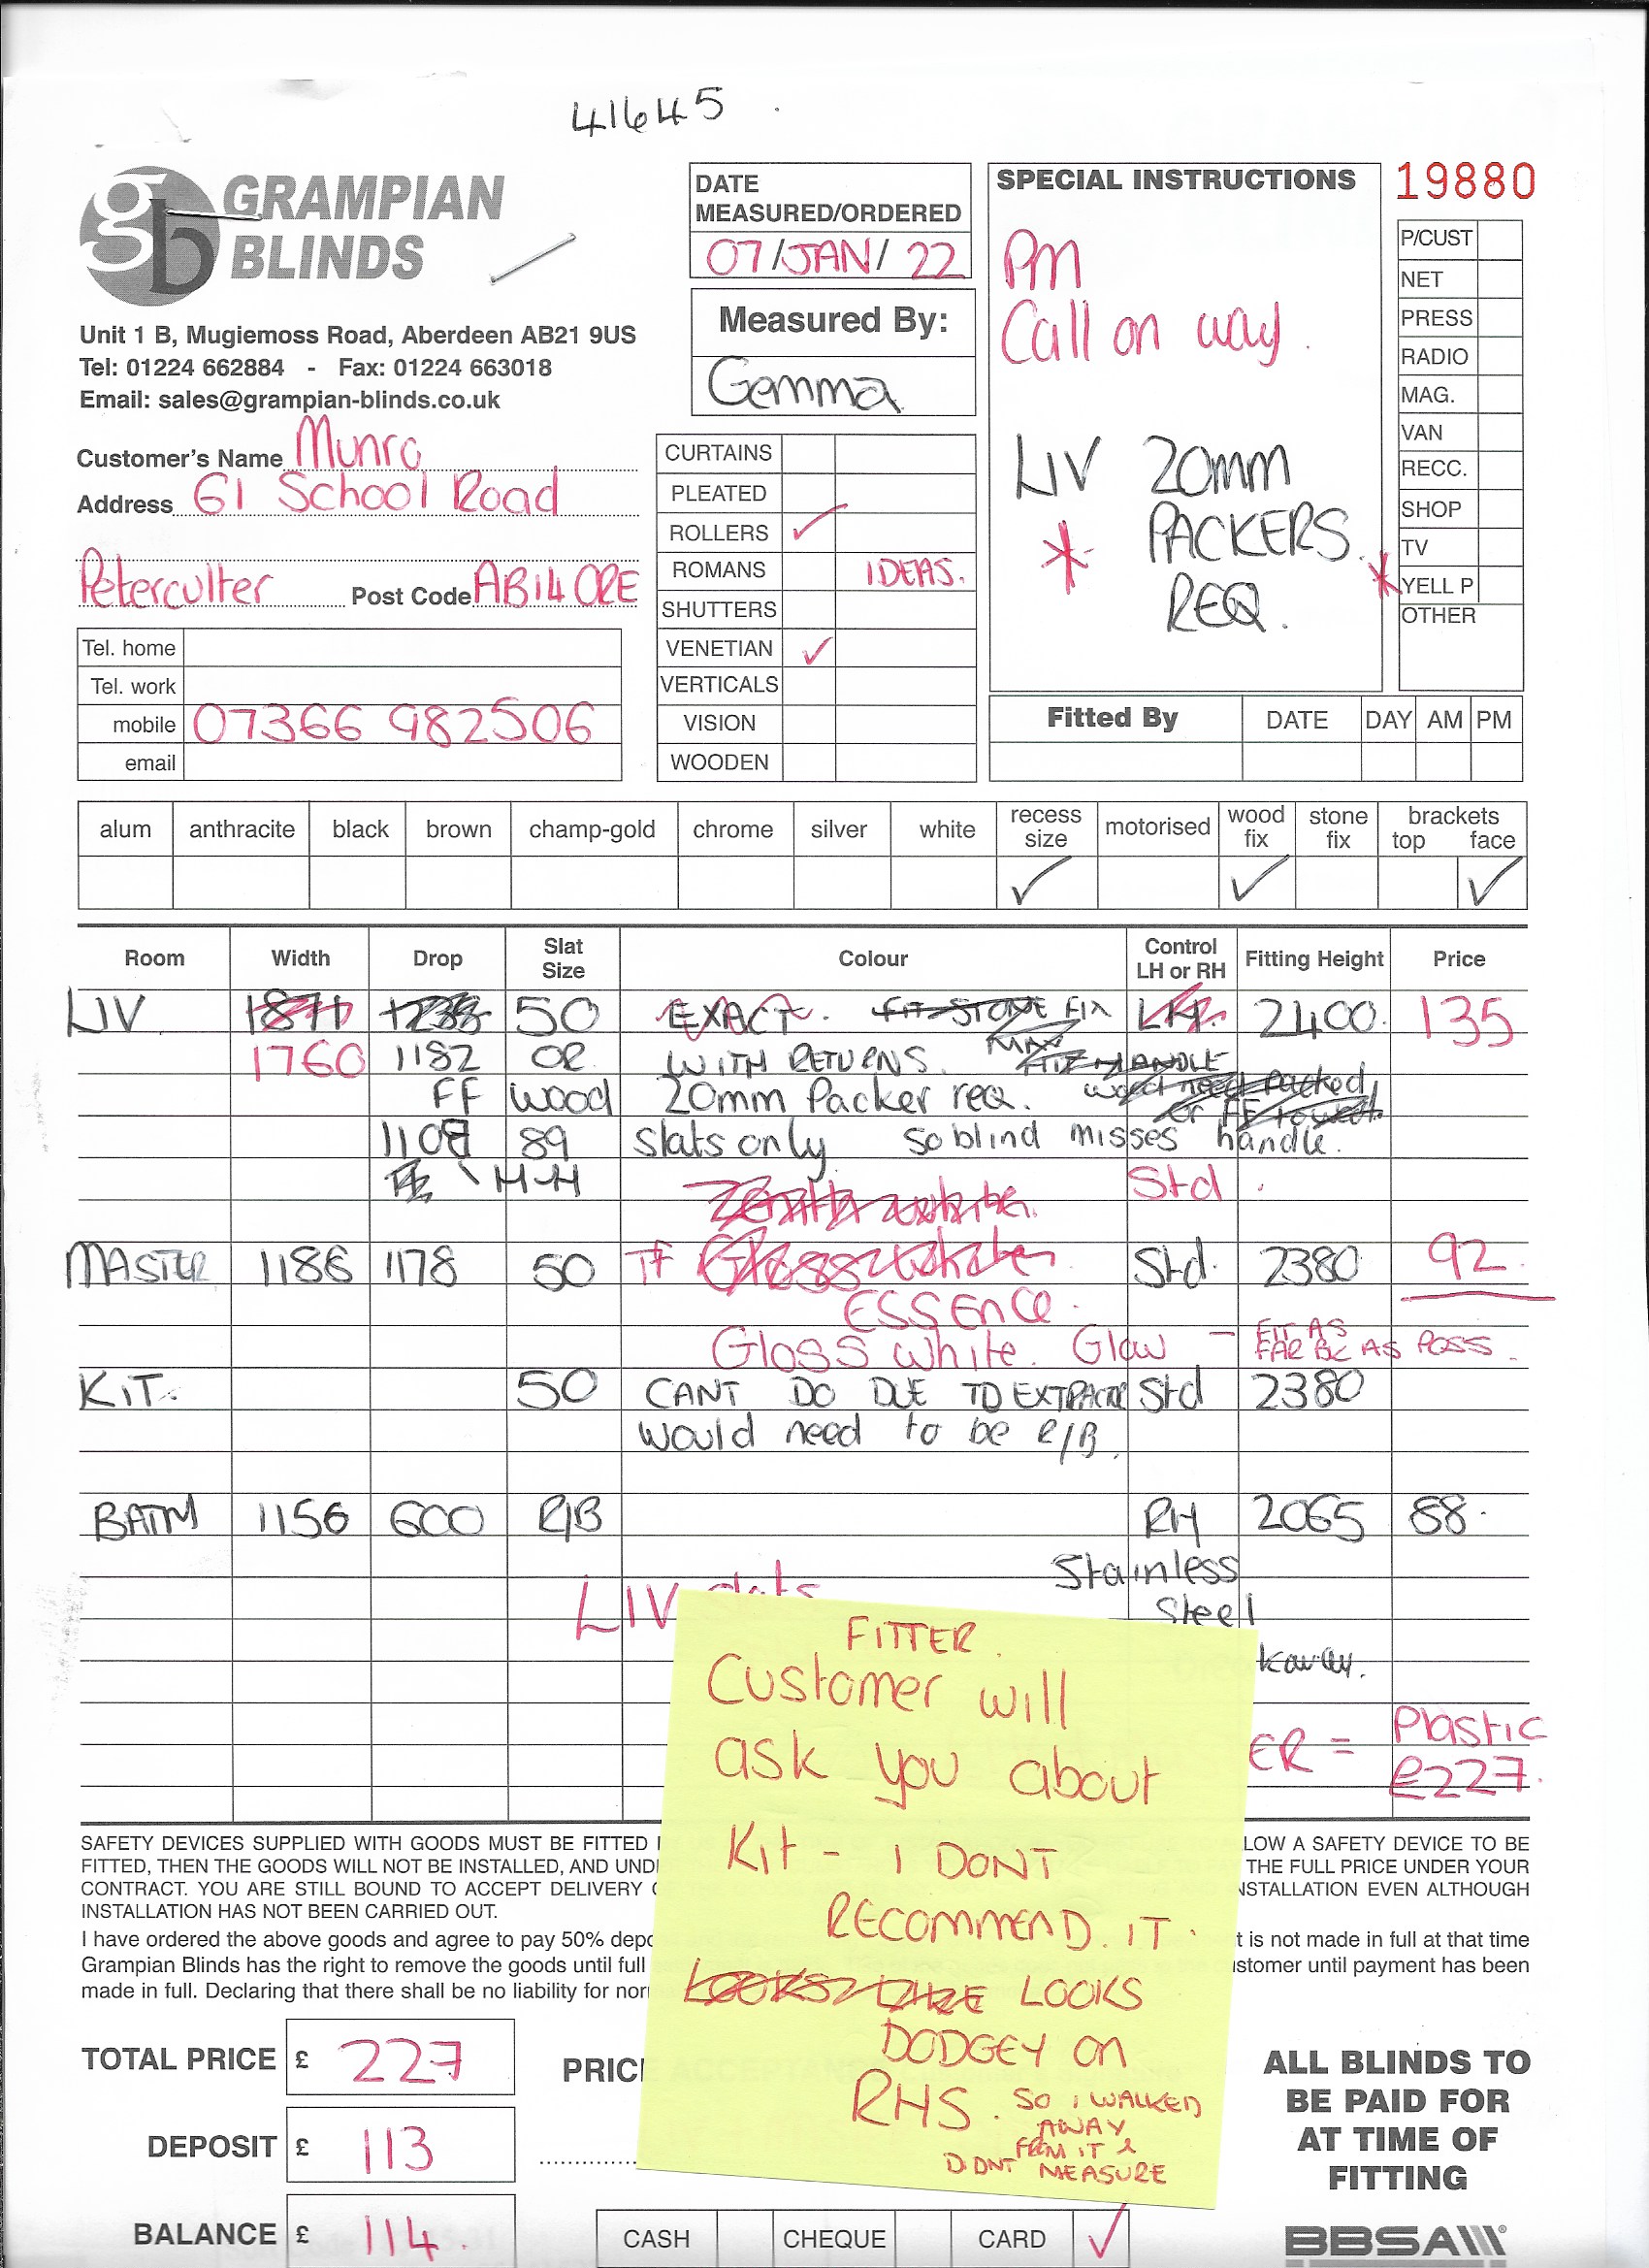 41645
GRAMPIAN
BLINDS
Unit 1 B, Mugiemoss Road, Aberdeen AB21 9US
Tel: 01224 662884 - Fax: 01224 663018
Email: sales@grampian-blinds.co.uk
Customer's Name Munro
Address 61 School Road
Peterculter Post Code AB14 0RE
Tel. home
Tel. work
mobile 07366 982506
email
DATE
MEASURED/ORDERED
07/JAN/22
Measured By:
Gemma
CURTAINS
PLEATED
ROLLERS ✓
ROMANS IDEAS.
SHUTTERS
VENETIAN ✓
VERTICALS
VISION
WOODEN
SPECIAL INSTRUCTIONS
PM
Call on way.
LIV 20mm
* PACKERS.
REQ.
19880
P/CUST
NET
PRESS
RADIO
MAG.
VAN
RECC.
SHOP
TV
* YELL P
OTHER
Fitted By DATE DAY AM PM
alum anthracite black brown champ-gold chrome silver white recess size motorised wood fix stone fix brackets top face
✓ ✓ ✓
Room Width Drop Slat Size Colour Control LH or RH Fitting Height Price
LIV 50 EXACT. FIX 2400. 135
1760 1182 OR WITH RETURNS.
FF wood 20mm Packer req.
1108 89 slats only so blind misses handle.
Std.
MASTER 1186 1178 50 TF Std. 2380 92.
ESSENCE.
Gloss white. Glow - FIT AS
FAR BC AS POSS.
KIT. 50 CANT DO DUE TO Std 2380
would need to be R/B.
BATH 1156 600 R/B RH 2065 88.
Stainless
Steel
LIV
ER = Plastic
£227.
FITTER.
Customer will
ask you about
Kit - I DONT
RECOMMEND. IT.
LOOKS
DODGEY on
RHS. SO I WALKED
AWAY
FROM IT &
DIDNT MEASURE
SAFETY DEVICES SUPPLIED WITH GOODS MUST BE FITTED LOW A SAFETY DEVICE TO BE
FITTED, THEN THE GOODS WILL NOT BE INSTALLED, AND UND THE FULL PRICE UNDER YOUR
CONTRACT. YOU ARE STILL BOUND TO ACCEPT DELIVERY NSTALLATION EVEN ALTHOUGH
INSTALLATION HAS NOT BEEN CARRIED OUT.
I have ordered the above goods and agree to pay 50% depo t is not made in full at that time
Grampian Blinds has the right to remove the goods until full stomer until payment has been
made in full. Declaring that there shall be no liability for
TOTAL PRICE £ 227
PRIC
DEPOSIT £ 113
BALANCE £ 114.
CASH CHEQUE CARD ✓
ALL BLINDS TO
BE PAID FOR
AT TIME OF
FITTING
BBSA